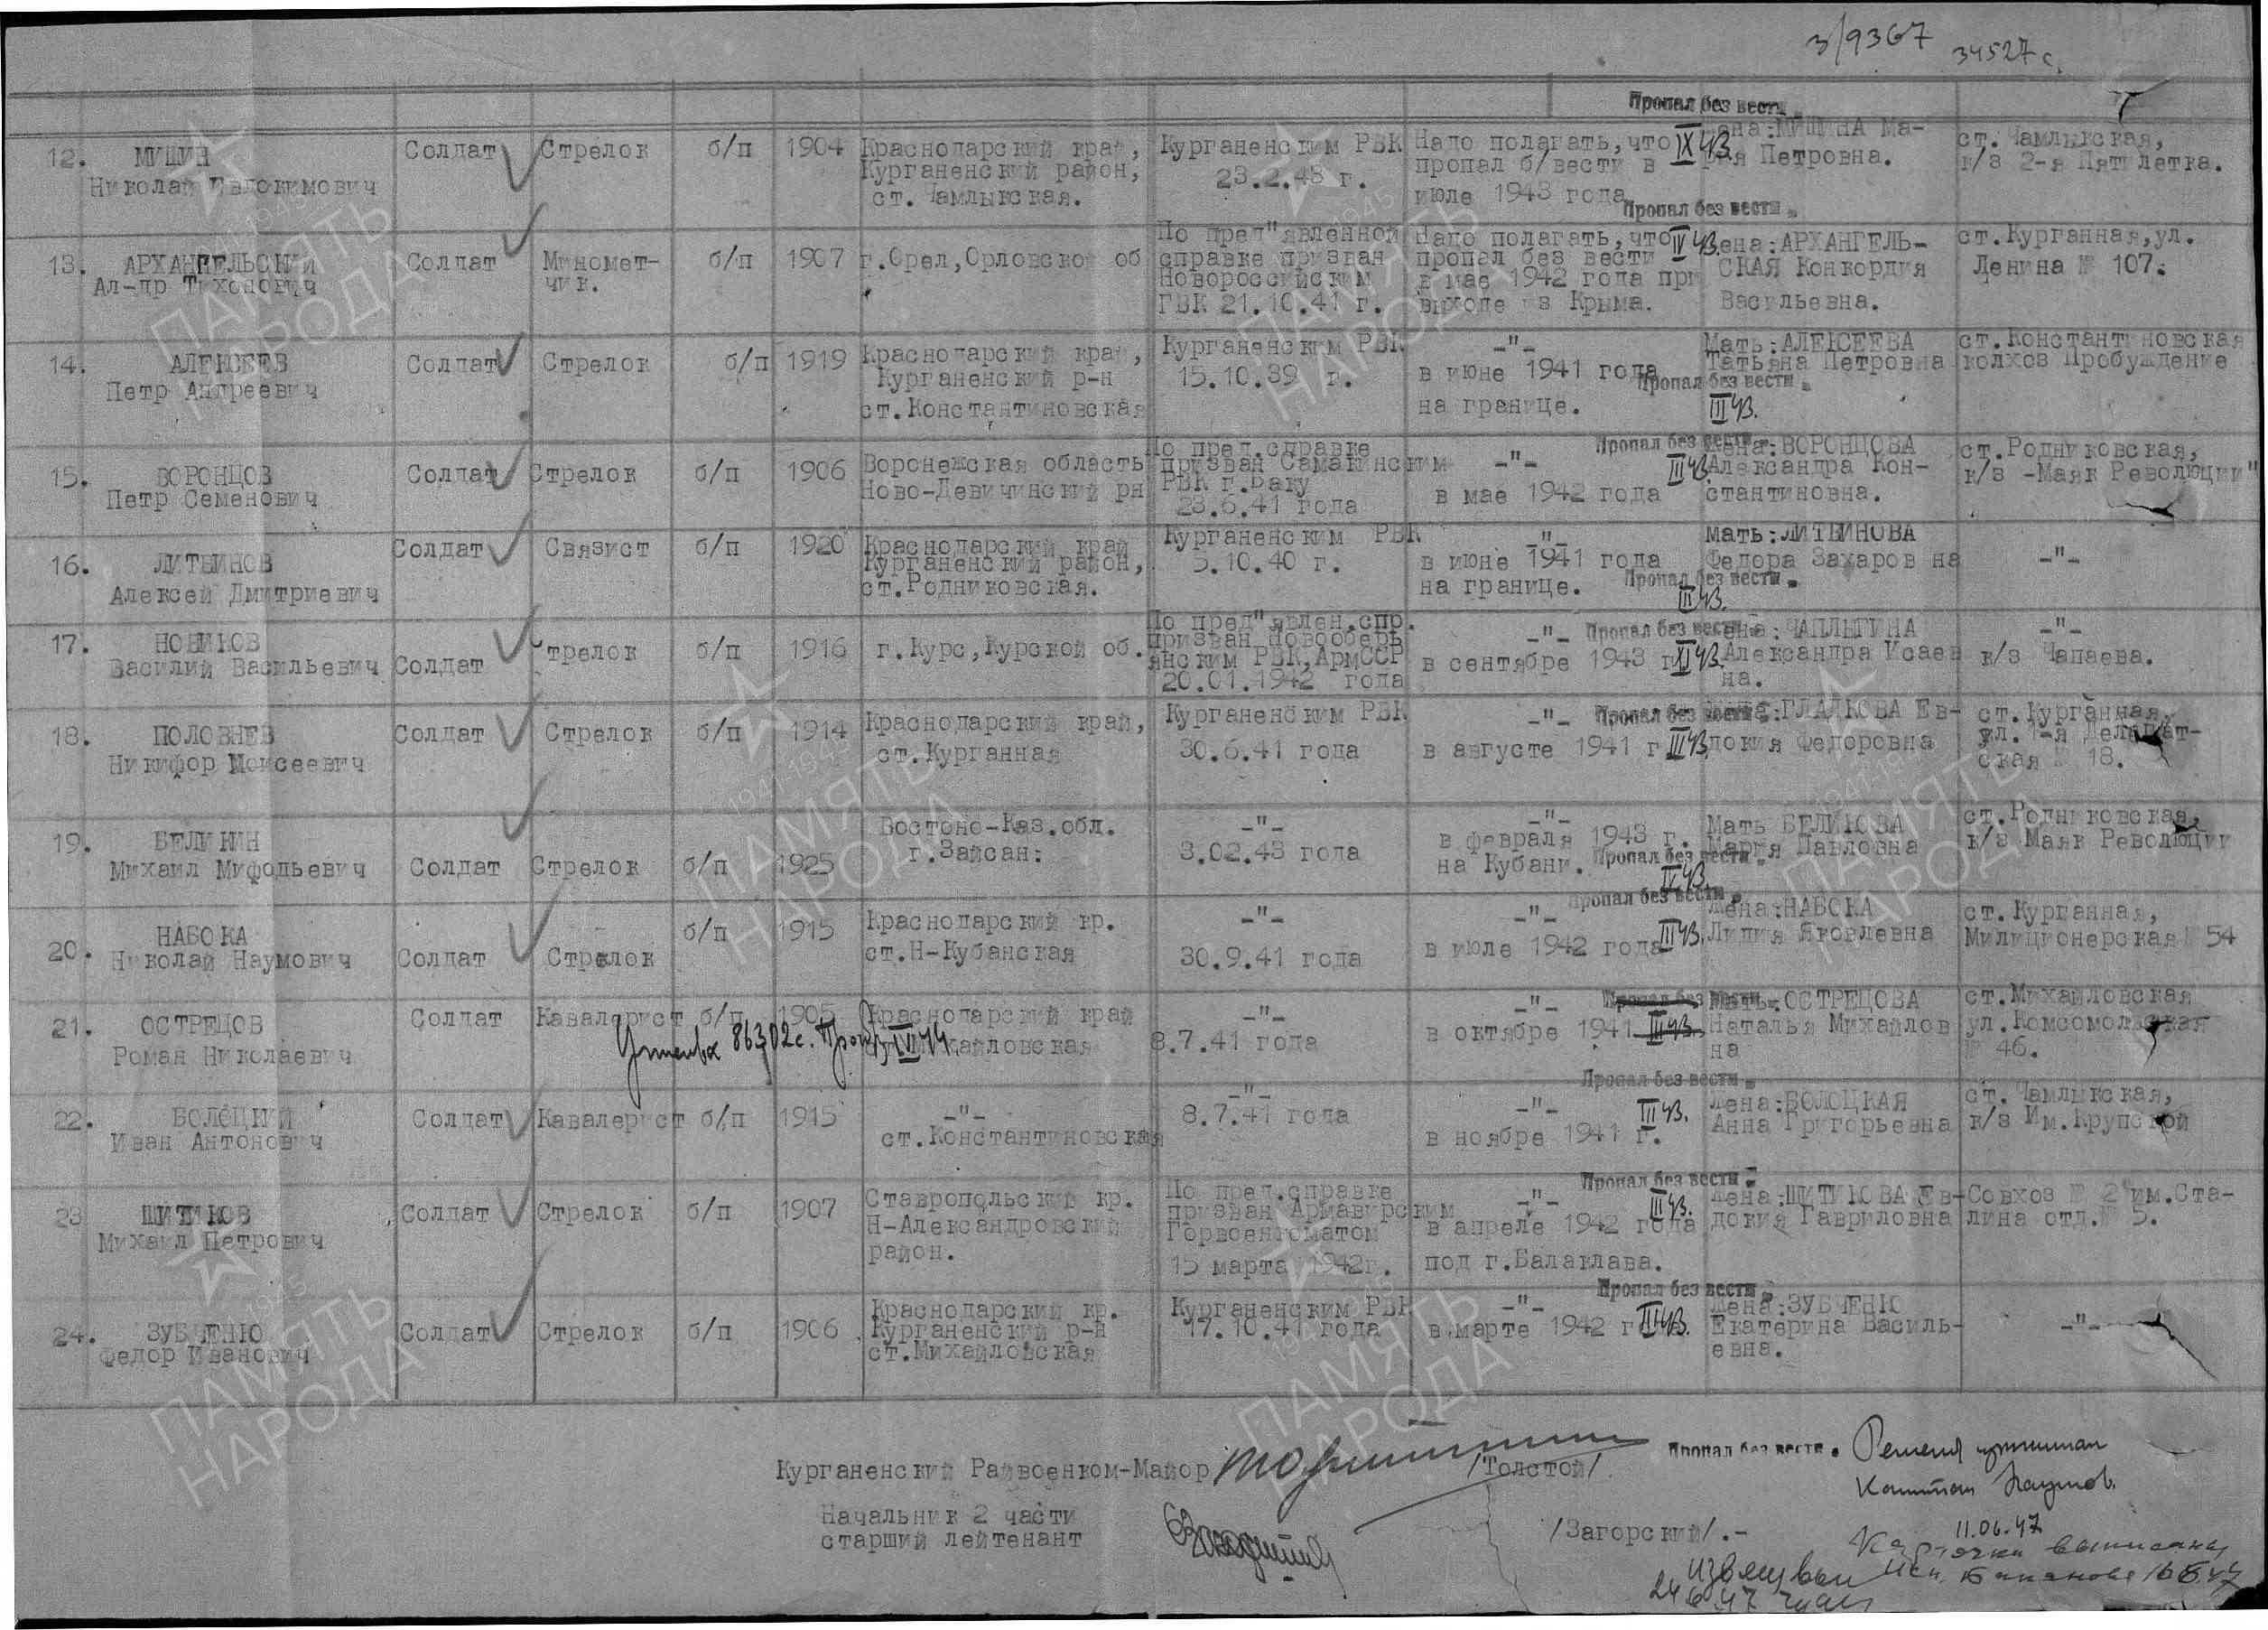 3/9367 34527с.
Пропал без вести
12. МИШИН
Николай Евдокимович
Солдат
Стрелок
б/п
1904
Краснодарский край,
Курганенский район,
ст. Чамлыкская.
Курганенским РВК
23.2.43 г.
Надо полагать, что
пропал б/вести в
июле 1943 года
IX 43.
Жена: МИШИНА Ма-
рия Петровна.
ст. Чамлыкская,
к/з 2-я Пятилетка.
Пропал без вести
13. АРХАНГЕЛЬСКИЙ
Ал-др Тихонович
Солдат
Миномет-
чик.
б/п
1907
г.Орел,Орловской об
По пред"явленной
справке призван
Новороссийским
ГВК 21.10.41 г.
Надо полагать, что
пропал без вести
в мае 1942 года при
выходе из Крыма.
IV 43.
Жена: АРХАНГЕЛЬ-
СКАЯ Конкордия
Васильевна.
ст.Курганная,ул.
Ленина № 107.
14. АЛЕКСЕЕВ
Петр Андреевич
Солдат
Стрелок
б/п
1919
Краснодарский край,
Курганенский р-н
ст.Константиновская
Курганенским РВК
15.10.39 г.
-"-
в июне 1941 года
на границе.
Мать: АЛЕКСЕЕВА
Татьяна Петровна
Пропал без вести
III 43.
ст.Константиновская
колхоз Пробуждение
15. ВОРОНЦОВ
Петр Семенович
Солдат
Стрелок
б/п
1906
Воронежская область
Ново-Девичинский рн
По пред.справке
призван Самакинским
РВК г.Баку
23.6.41 года
-"-
в мае 1942 года
Пропал без вести
III 43.
Жена: ВОРОНЦОВА
Александра Кон-
стантиновна.
ст.Родниковская,
к/з -Маяк Революции"
16. ЛИТВИНОВ
Алексей Дмитриевич
Солдат
Связист
б/п
1920
Краснодарский край
Курганенский район,
ст.Родниковская.
Курганенским РВК
5.10.40 г.
-"-
в июне 1941 года
на границе.
Мать: ЛИТВИНОВА
Федора Захаров на
Пропал без вести
III 43.
-"-
17. НОВИКОВ
Василий Васильевич
Солдат
Стрелок
б/п
1916
г.Курс,Курской об.
По пред"явлен.спр.
призван Новооберь
янским РВК,АрмССР
20.01.1942 года
-"-
в сентябре 1943 г
Пропал без вести
XI 43.
Жена: ЧАПЛЫГИНА
Александра Исаев
на.
-"-
к/з Чапаева.
18. ПОЛОВНЕВ
Никифор Моисеевич
Солдат
Стрелок
б/п
1914
Краснодарский край,
ст.Курганная
Курганенским РВК
30.6.41 года
-"-
в августе 1941 г
Пропал без вести
III 43.
Жена: ГЛАДКОВА Ев-
докия Федоровна
ст.Курганная,
ул. 1-я Делегат-
ская № 18.
19. БЕЛИКИН
Михаил Мифодьевич
Солдат
Стрелок
б/п
1925
Востоно-Каз.обл.
г.Зайсан:
-"-
3.02.43 года
-"-
в февраля 1943 г.
на Кубани.
Пропал без вести
IV 43
Мать БЕЛИКОВА
Мария Павловна
ст.Родниковская,
к/з Маяк Революции
20. НАБОКА
Николай Наумович
Солдат
Стрелок
б/п
1915
Краснодарский кр.
ст.Н-Кубанская
-"-
30.9.41 года
-"-
в июле 1942 года
Пропал без вести
III 43.
Жена:НАБОКА
Лидия Яковлевна
ст.Курганная,
Милиционерская № 54
21. ОСТРЕЦОВ
Роман Николаевич
Солдат
Кавалерист
б/п
1905
Краснодарский край
ст.Михайловская
86302с.
-"-
8.7.41 года
-"-
в октябре 1941
Пропал без вести
III 43.
Мать: ОСТРЕЦОВА
Наталья Михайлов
на
ст.Михайловская
ул.Комсомольская
№ 46.
22. БОЛОЦКИЙ
Иван Антонович
Солдат
Кавалерист
б/п
1915
-"-
ст.Константиновская
-"-
8.7.41 года
-"-
в ноябре 1941 г.
Пропал без вести
III 43.
Жена:БОЛОЦКАЯ
Анна Григорьевна
ст. Чамлыкская,
к/з Им.Крупской
23 ШИТИКОВ
Михаил Петрович
Солдат
Стрелок
б/п
1907
Ставропольский кр.
Н-Александровский
район.
По пред.справке
призван Армавирским
Горвоенкоматом
15 марта 1942г.
-"-
в апреле 1942 года
под г.Балаклава.
Пропал без вести
III 43.
Жена:ШИТИКОВА Ев-
докия Гавриловна
Совхоз № 2 им.Ста-
лина отд.№ 5.
24. ЗУБЧЕНКО
Федор Иванович
Солдат
Стрелок
б/п
1906
Краснодарский кр.
Курганенский р-н
ст.Михайловская
Курганенским РВК
17.10.41 года
-"-
в марте 1942 г
Пропал без вести
III 43.
Жена:ЗУБЧЕНКО
Екатерина Василь-
евна.
-"-
Курганенский Райвоенком-Майор /Толстой/
Пропал без вести
Капитан Наумов.
Начальник 2 части
старший лейтенант /Загорский/.-
11.06.47
Карточки выписаны
24 6 47
1941-1945
ПАМЯТЬ
НАРОДА